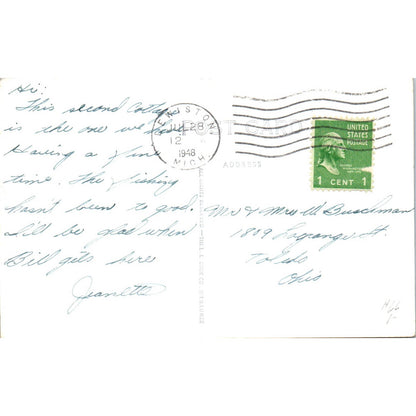 Hi:
This second Cottage
is the one we have
Having a fine
time. The fishing
hasn't been to good.
I'll be glad when
Bill gets here
Jeanette
ENISTON
JUL 28
12
1948
MICH
POST CARD
ADDRESS
UNITED
STATES
POSTAGE
1 CENT 1
Mr & Mrs W. Buschman
1809 Lagrange St.
Toledo
Ohio